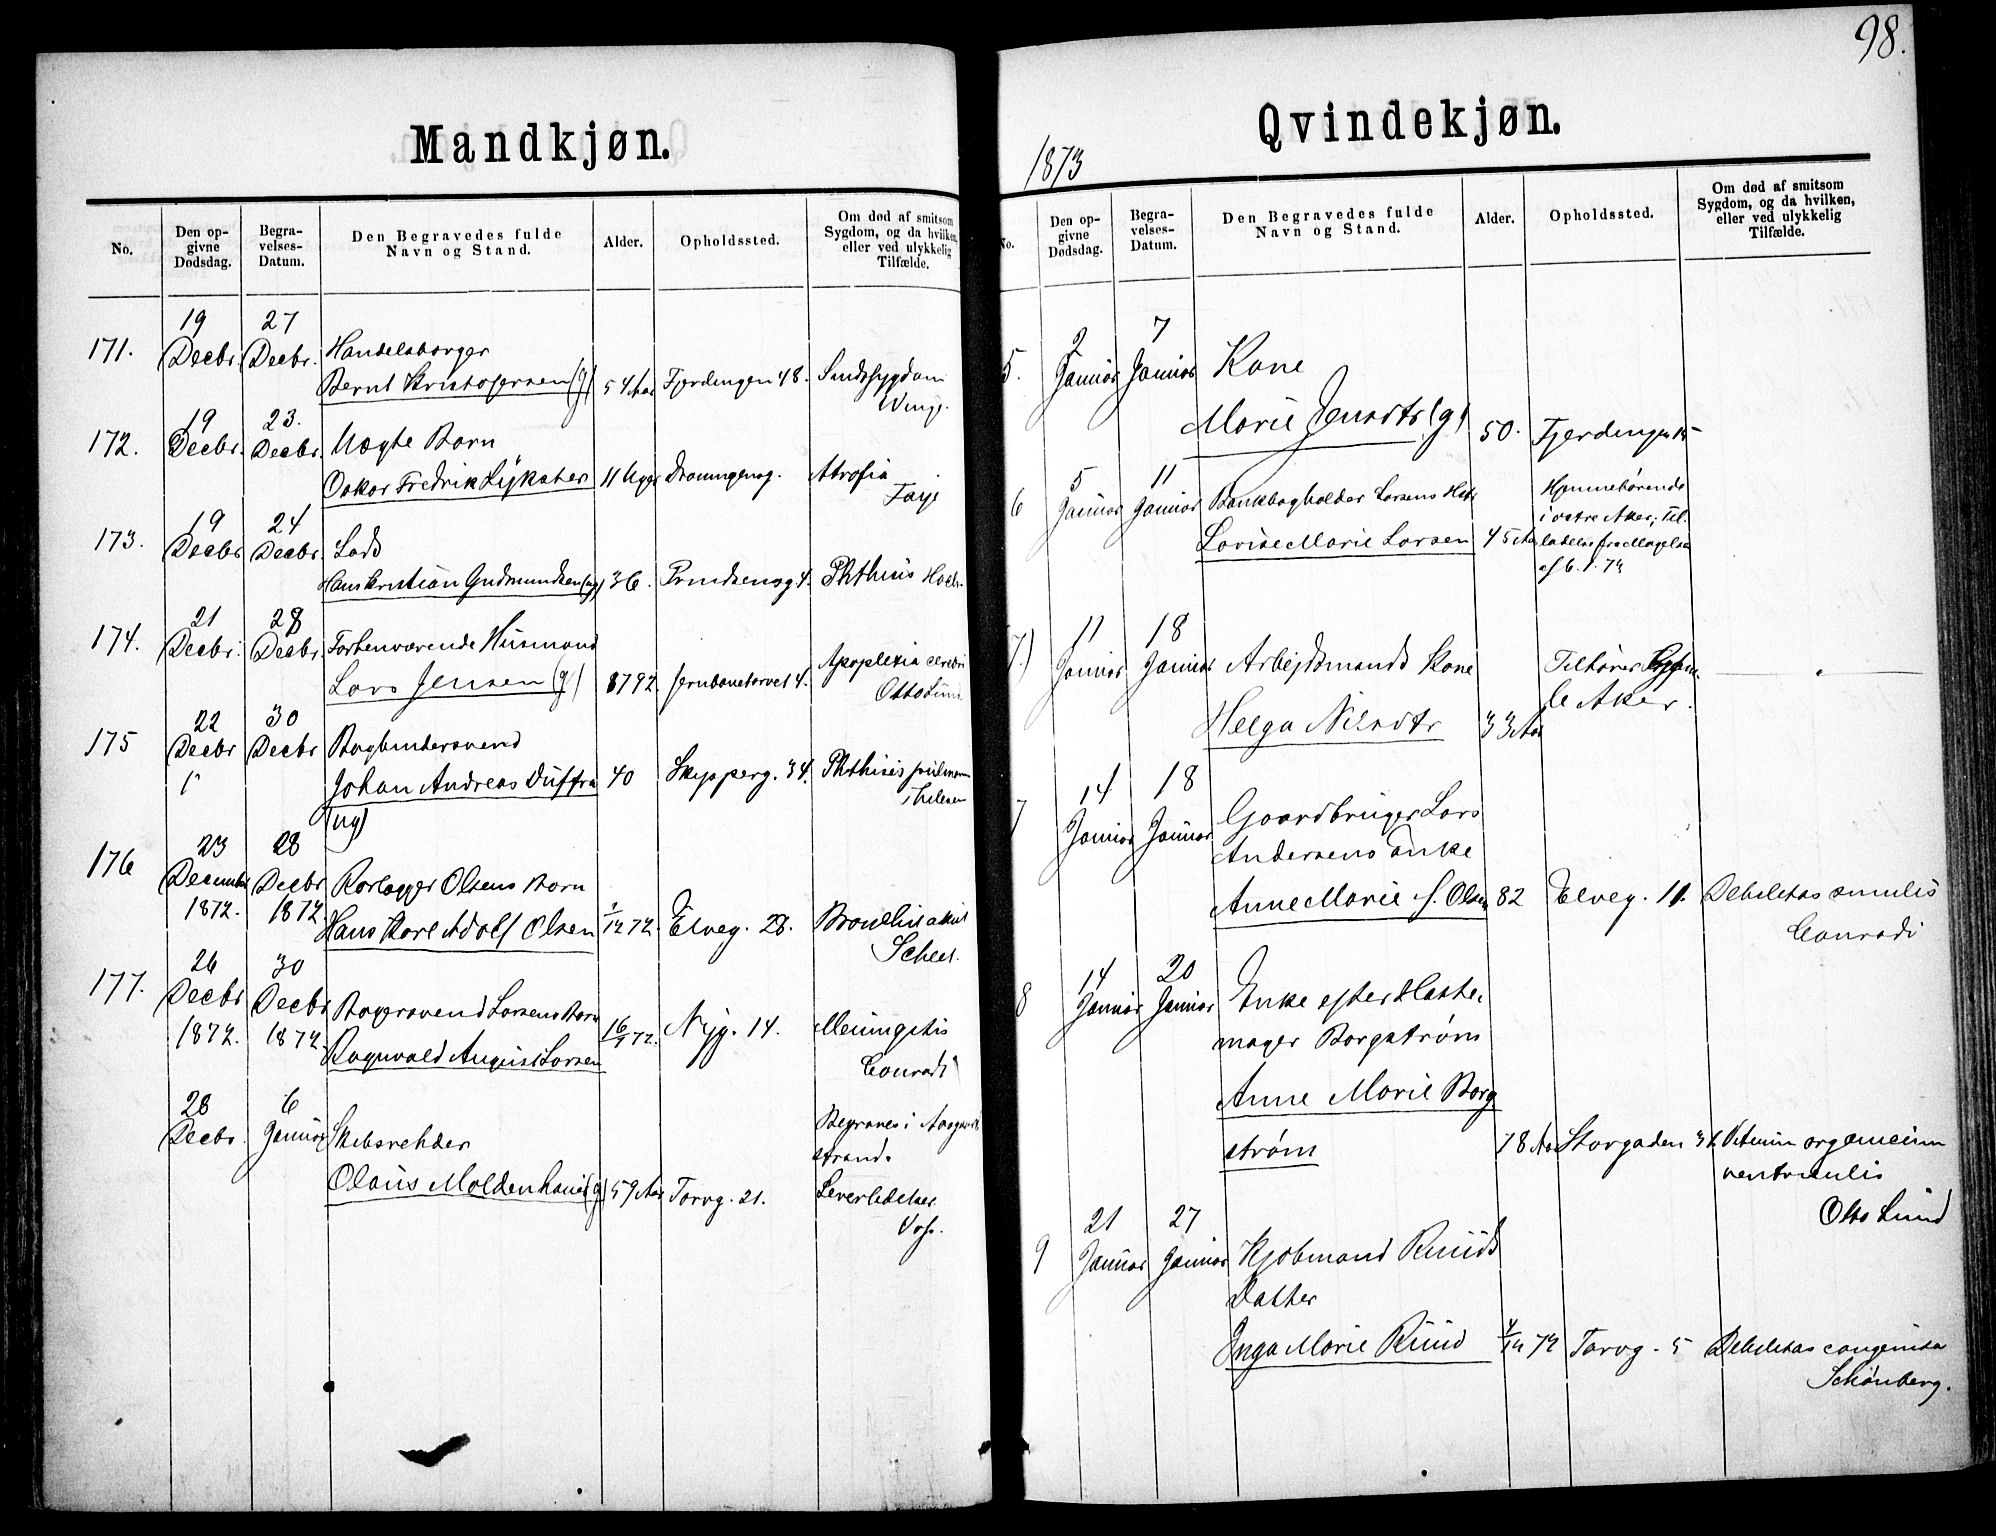 Mandkjøn.
No.
Den op-
givne
Dødsdag.
Begra-
velses-
Datum.
Den Begravedes fulde
Navn og Stand.
Alder.
Opholdssted.
Om død af smitsom
Sygdom, og da hvilken,
eller ved ulykkelig
Tilfælde.
171.
19
Decbr.
27
Decbr.
Handelsborger
Bernt Kristofersen (g)
54 Aar
Fjerdingen 48.
Sindssygdom
Winge.
172.
19
Decbr.
23.
Decbr.
Uægte Barn
Oskar Fredrik
11 Uger
Dronningensg.
Atrofia
Faye
173.
19
Decbr
24
Decbr.
Hans Kristian Gudmundsen (ug)
36.
Prindsensg 4.
Phthisis
174.
21
Decbr.
28
Decbr.
Forhenværende Husmand
Lars Jensen (g)
Jernbanetorvet 4.
Apoplexia cerebri
Otto Lund
175
22
Decbr
30
Decbr
Bogbindersvend
Johan Andreas
(ug)
40
Skipperg. 34.
Phthisis pulmon
176
23
December
1872.
28
Decbr
1872.
Rorlægger Olsens Barn
Hans Karl Adolf Olsen
72.
Elveg. 28.
Scheel.
177.
26
Decbr
1872.
30
Decbr
1872.
Bagersvend Larsens Barn
Ragnvald August Larsen
72.
Nyg. 14.
Meningitis
Conradi
28
Decbr.
6
Januar
Skibsrehder
Olaus Moldenhauer (g)
59 Aar
Torvg. 21.
Begraves i Aasgaard
strand.
Leverlidelse.
Voss.
98.
1873
Qvindekjøn.
No.
Den op-
givne
Dødsdag.
Begra-
velses-
Datum.
Den Begravedes fulde
Navn og Stand.
Alder.
Opholdssted.
Om død af smitsom
Sygdom, og da hvilken,
eller ved ulykkelig
Tilfælde.
5.
2
Januar
7
Januar
Kone
Marie Jensdtr (g)
50.
Fjerdingen 15
6
5
Januar
11
Januar
Bankbogholder Larsens
Lovise Marie Larsen
45 Aar
Hjemmehørende
i vestre Aker; Til
ladelse fra
af 6. 1. 73
7.)
11
Januar
18
Januar
Arbejdsmands Kone
Helga Nilsdtr
33 Aar
Tilhører Gam
le Aker.
"
7
14
Januar
18
Januar
Gaardbruger Lars
Andersens Enke
Anne Marie S. Olsen
82
Elveg. 11.
Debilitas senilis
Conradi
8
14
Januar
20
Januar
Enke efter Hatte,
mager Borgstrøm
Anne Marie Borg
strøm
78 Aar
Storgaden
organicum
ventriculi
Otto Lund
9
21
Januar
27
Januar
Kjøbmand Ruuds
Datter
Inga Marie Ruud
Torvg. 5
Debilitas congenita
Schønberg.